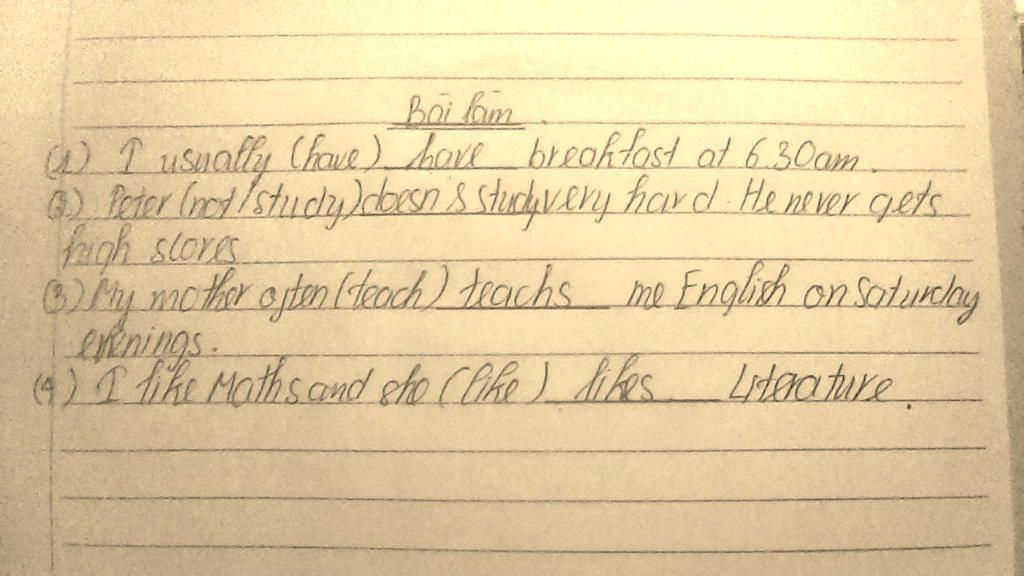 Bài làm.
(1) I usually (have) have breakfast at 6.30am.
(2) Peter (not/study) doesn's study very hard. He never gets
high scores.
(3) My mother often (teach) teachs me English on Saturday
evenings.
(4) I like Maths and she (like) likes Literature.